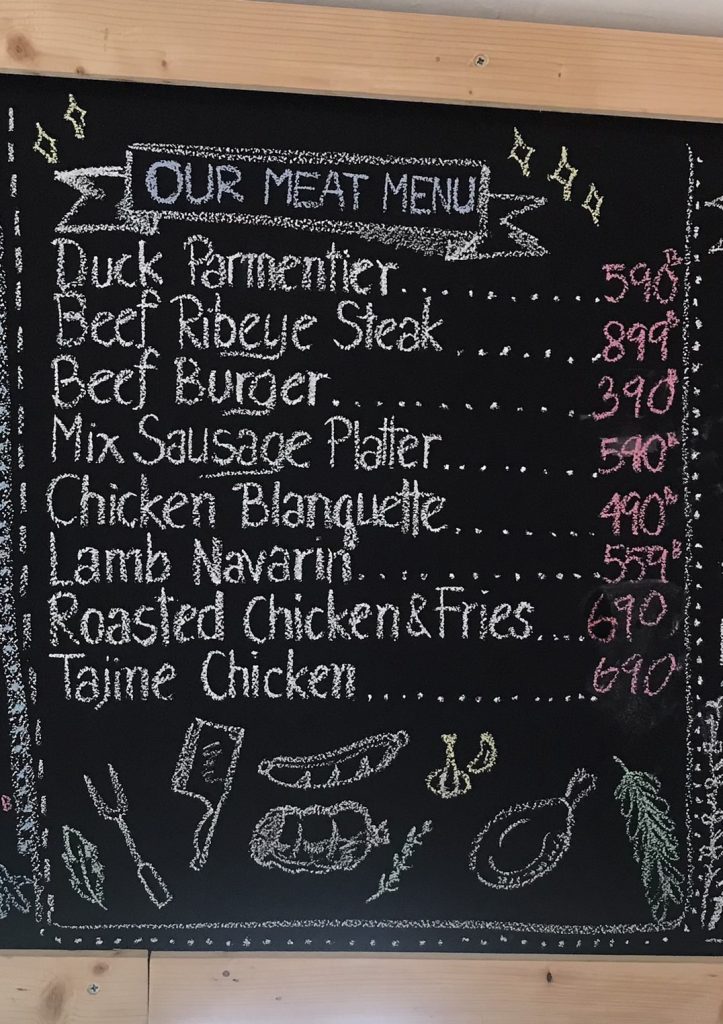 OUR MEAT MENU
Duck Parmentier.............590฿
Beef Ribeye Steak..........899฿
Beef Burger................390฿
Mix Sausage Platter.........590฿
Chicken Blanguette.........490฿
Lamb Navarin...............559฿
Roasted Chicken&Fries....690
Tajine Chicken..............690